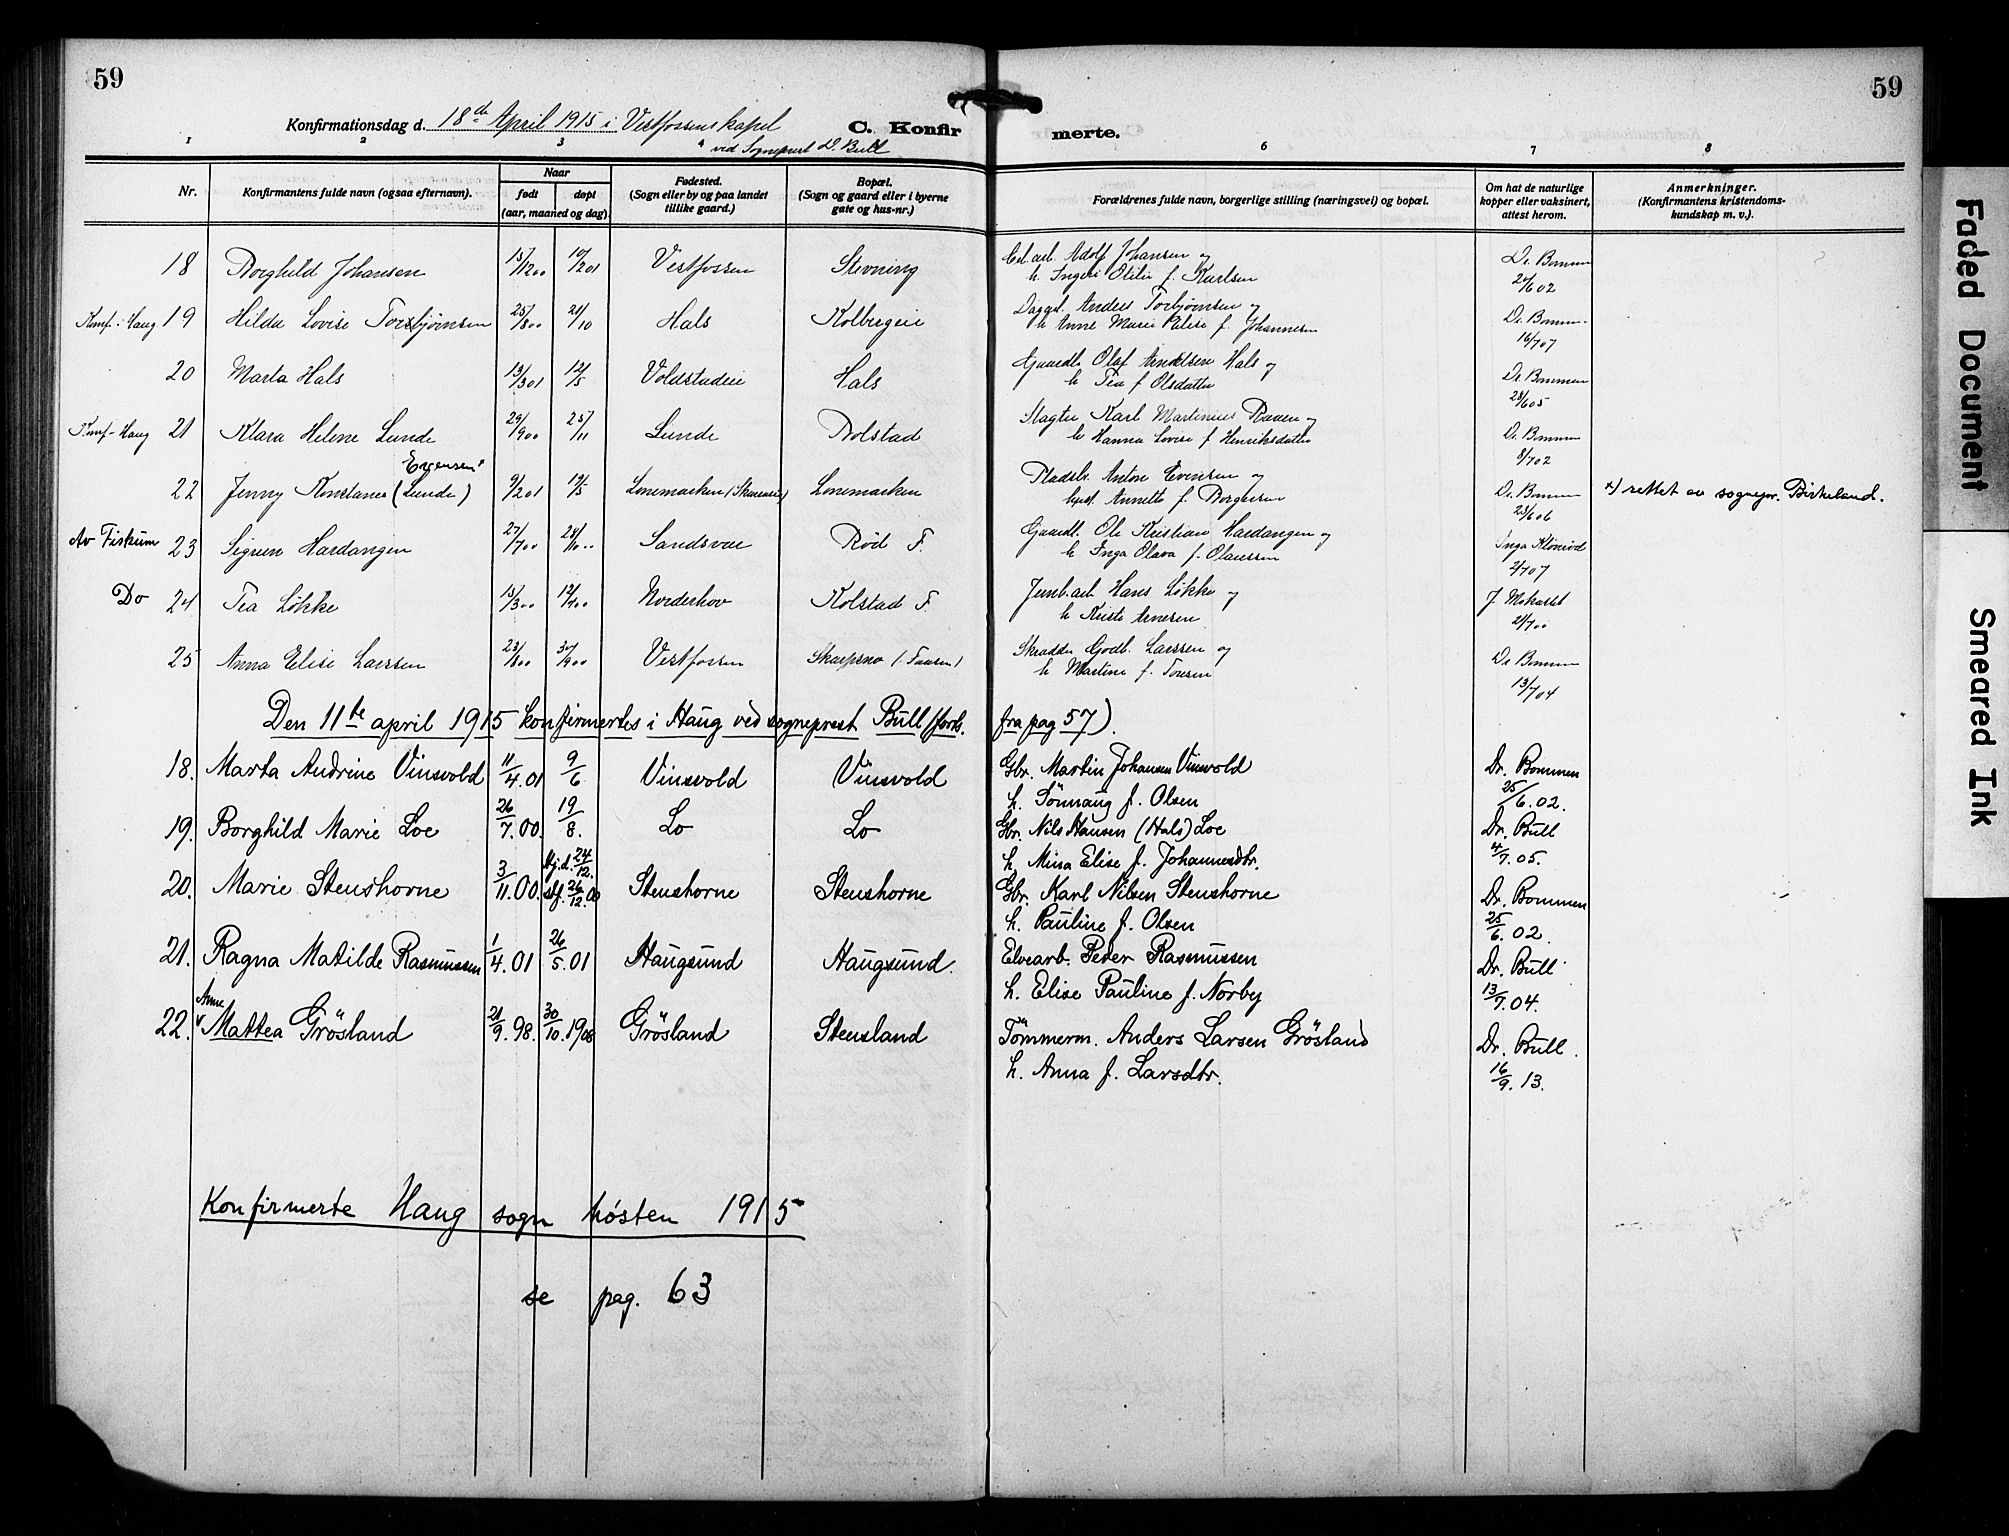 59
59
Konfirmationsdag d. 18de April 1915 i Vestfossens kapel
ved Sogneprest D. Bull
C. Konfirmerte.
1 2 3 4 6 7 8
Nr.
Konfirmantens fulde navn (ogsaa efternavn).
Naar
født
døpt
(aar, maaned og dag)
Fødested.
(Sogn eller by og paa landet
tillike gaard.)
Bopæl.
(Sogn og gaard eller i byerne
gate og hus-nr.)
Forældrenes fulde navn, borgerlige stilling (næringsvei) og bopæl.
Om hat de naturlige
kopper eller vaksinert,
attest herom.
Anmerkninger.
(Konfirmantens kristendoms-
kundskap m. v.).
18 Borghild Johansen 15/12 00 10/2 01 Vestfossen Stevning Cel.arb. Adolf Johansen og Dr. Bommen
h. Ingeri Otilie f. Karlsen 24/6 02
Konf. i Haug 19 Hilda Lovise Torbjørnsen 25/8 00 21/10 Hals Kolbergeie Daggl. Anders Torbjørnsen og Dr. Bommen
h. Anne Marie Elise f. Johannesen 16/7 07
20 Marta Hals 13/3 01 12/5 Voldstadeie Hals Gaardb. Olaf Arnoldsen Hals og Dr. Bommen
h. Tea f. Olsdatter 23/6 05
Konf. Haug 21 Klara Helene Lunde 29/9 00 25/11 Lunde Bolstad Slagter Karl Martinius Raaen og Dr. Bommen
h. Hanna Lovise f. Henriksdatter 8/7 02
22 Jenny Konstance (Lunde) Evensen x 9/2 01 19/5 Lonemarken (Skarerud) Lonemarken Pladsbr. Anton Evensen og Dr. Bommen x) rettet av sognepr. Birkeland.
hust. Annette f. Borgersen 23/6 06
Av Fiskum 23 Sigrun Hardangen 27/7 00 28/10 00 Sandsvær Rød F. Gaardb. Ole Kristian Hardangen og Inga Kløvrød
h. Inga Olava f. Olaussen 2/7 07
Do 24 Tea Løkke 15/3 00 12/7 00 Norderhov Kolstad F. Jernb.arb. Hans Løkke og
h. Kristi Arnesen 21/7 00
25 Anna Elise Larssen 23/8 00 30/9 00 Vestfossen Skarpsno (Fausen) Skrædder Godb. Larssen og Dr. Bommen
h. Martine f. Toresen 13/7 04
Den 11te april 1915 konfirmertes i Haug ved sogneprest Bull (forts. fra pag 57).
18. Marta Andrine Vinsvold 11/4.01 9/6 Vinsvold Vinsvold Gbr. Martin Johansen Vinsvold Dr. Bommen
h. Tönnaug f. Olsen 25/6.02.
19. Borghild Marie Loe 26/7.00. 19/8. Lo Lo Gbr. Nils Hansen (Hals) Loe Dr. Bull
h. Mina Elise f. Johannesdtr. 4/7.05.
20. Marie Stenshorne 3/11.00. Hj.d. 24/12. stf. 26/12.00 Stenshorne Stenshorne Gbr. Karl Nilsen Stenshorne Dr. Bommen
h. Pauline f. Olsen 25/6.02.
21. Ragna Matilde Rasmussen 1/4.01 26/5.01 Haugsund Haugsund. Elvearb. Peder Rasmussen Dr. Bull
h. Elise Pauline f. Norby 13/7.04.
Anne
22. Mattea Grösland 21/9.98. 30/10.1908 Grösland Stensland Tömmerm. Anders Larsen Grösland Dr. Bull.
h. Anna f. Larsdtr. 16/9.13.
Konfirmerte Haug sogn høsten 1915
se pag. 63
Faded Document
Smeared Ink